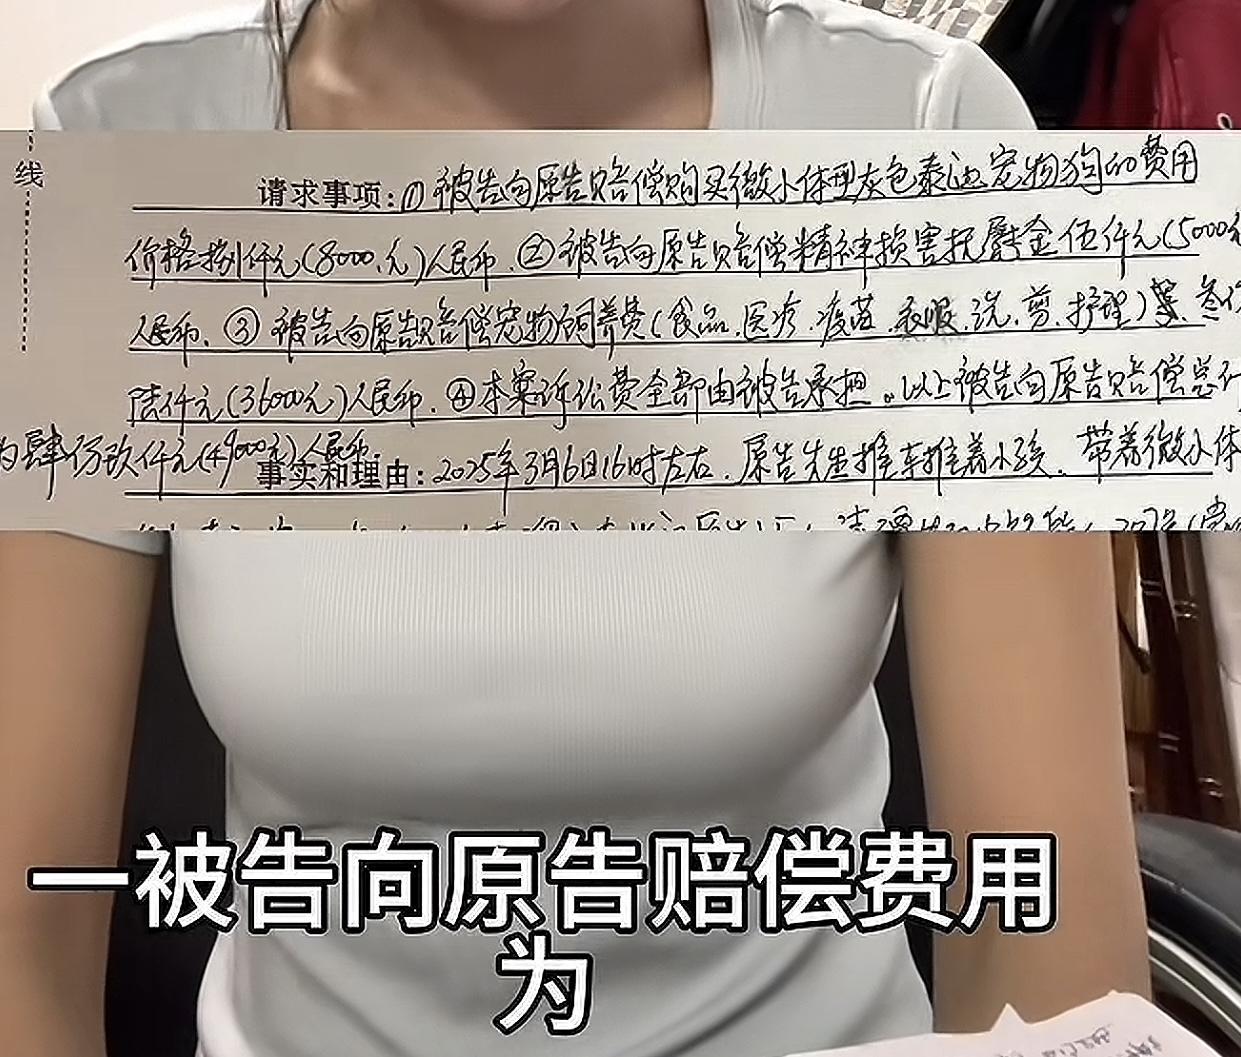 线
请求事项:① 被告向原告赔偿购买微小体型灰色泰迪宠物狗的费用
价格捌仟元(8000.元)人民币.②被告向原告赔偿精神损害抚慰金伍仟元(5000元
人民币.③ 被告向原告赔偿宠物饲养费(食品.医疗.疫苗.衣服.洗.剪.护理)等.叁仟
陆仟元(36000元)人民币.④本案诉讼费全部由被告承担。以上被告向原告赔偿总计
为肆仟玖仟元(49000元)人民币.
事实和理由:2025年3月6日16时左右.原告先生推车推着小孩.带着微小体
一被告向原告赔偿费用
为